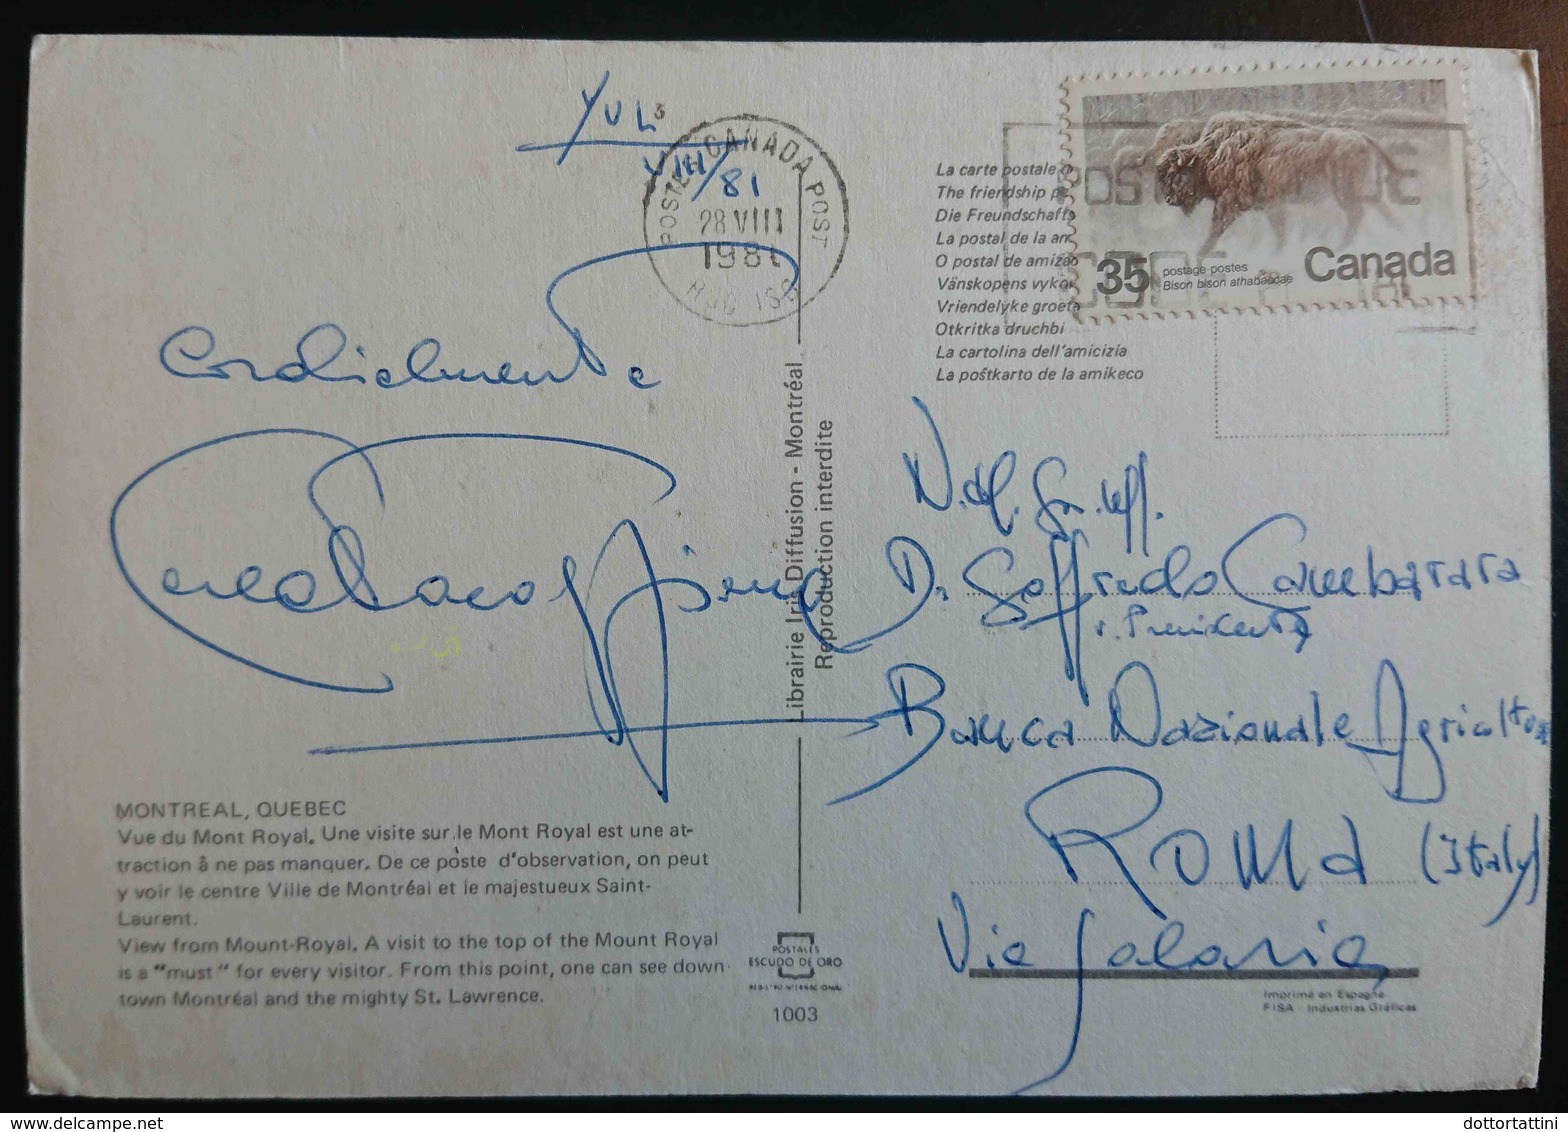 YUL
VIII/81
CANADA POST
28 VIII
1981
Cordialmente
MONTREAL, QUEBEC
Vue du Mont Royal. Une visite sur le Mont Royal est une at-
traction à ne pas manquer. De ce poste d'observation, on peut
y voir le centre Ville de Montréal et le majestueux Saint-
Laurent.
View from Mount-Royal. A visit to the top of the Mount Royal
is a "must" for every visitor. From this point, one can see down
town Montréal and the mighty St. Lawrence.
Librairie Iris Diffusion - Montréal
Reproduction interdite
POSTALES
ESCUDO DE ORO
REGISTRO INTERNACIONAL
1003
La carte postale
The friendship
Die Freundschafts
La postal de la am
O postal de amizad
Vänskopens vykor
Vriendelyke groete
Otkritka druchbi
La cartolina dell'amicizia
La poŝtkarto de la amikeco
35 postage postes
Bison bison athabascae
Canada
N.H. Gr. Uff.
Dr Goffredo Cambarara
v. Presidente
Banca Nazionale Agricoltura
ROMA (Italy)
Via Salaria
Imprimé en Espagne
FISA - Industrias Gráficas
dottortattini